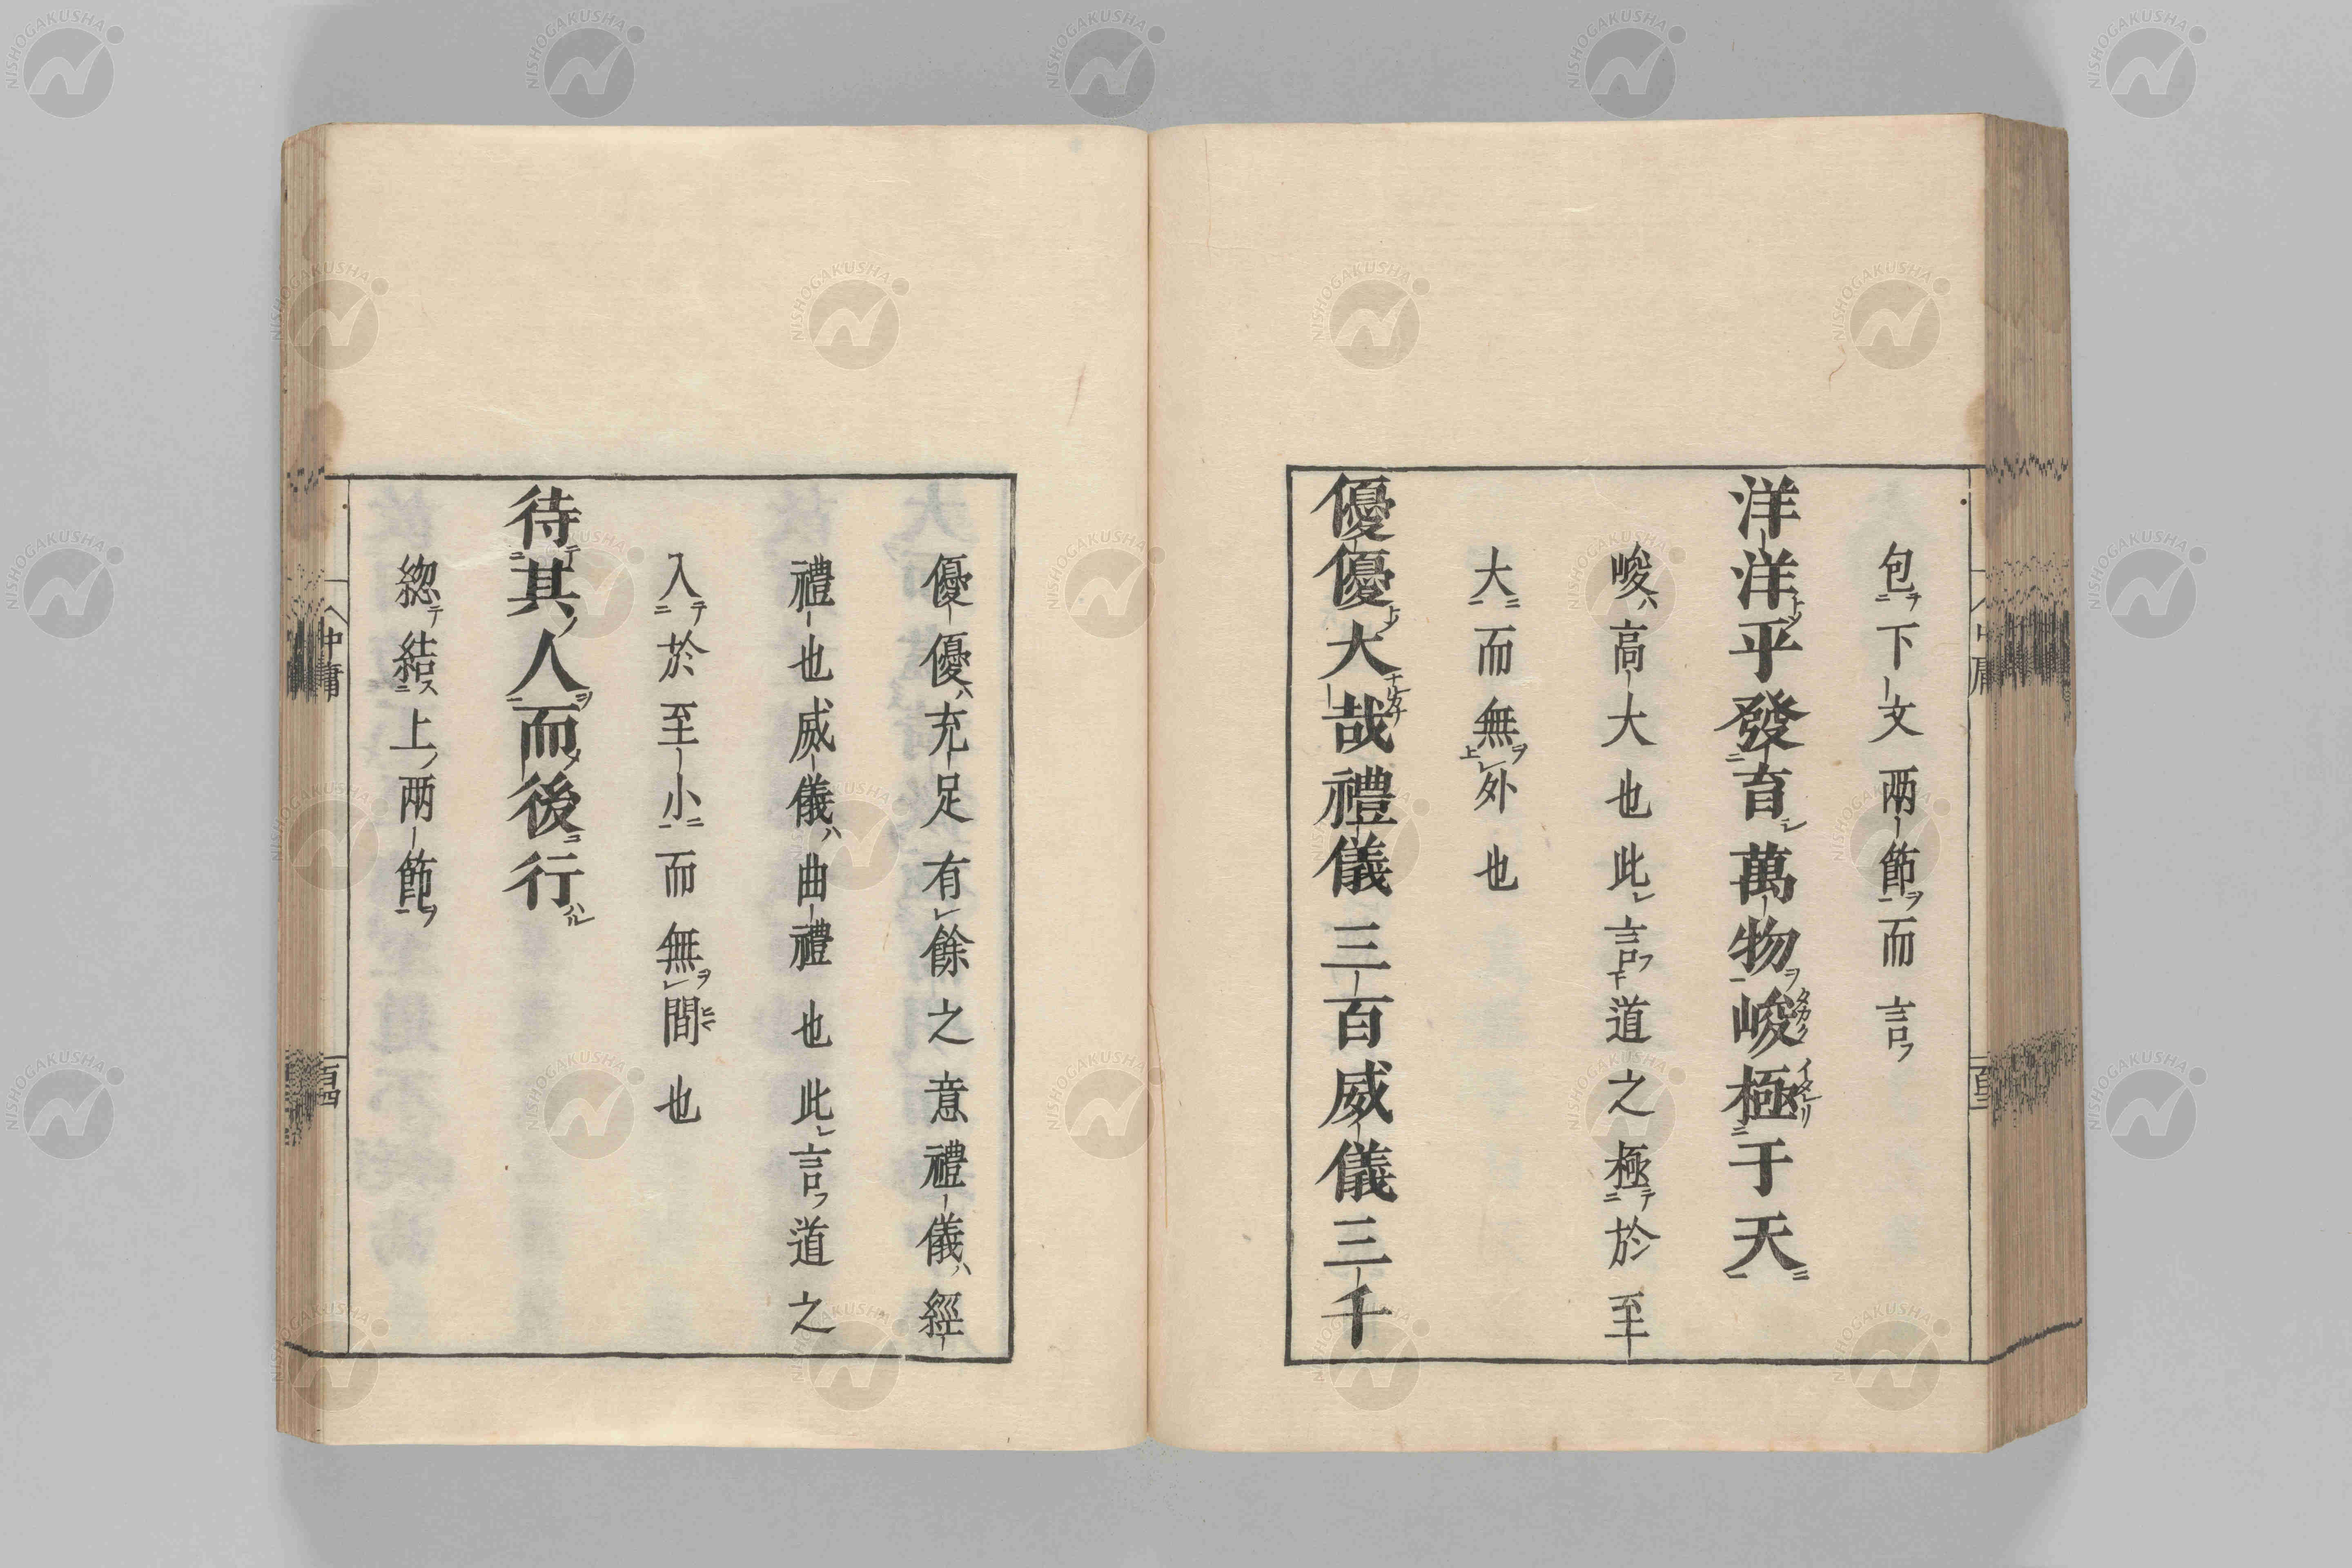 包下文两節而言
洋洋乎發育萬物峻極于天
峻高大也此言道之極於至
大而無外也
優優大哉禮儀三百威儀三千
優優充足有餘之意禮儀經
禮也威儀曲禮也此言道之
入於至小而無間也
待其人而後行
緫結上两節
中庸
百四
NISHOGAKUSHA